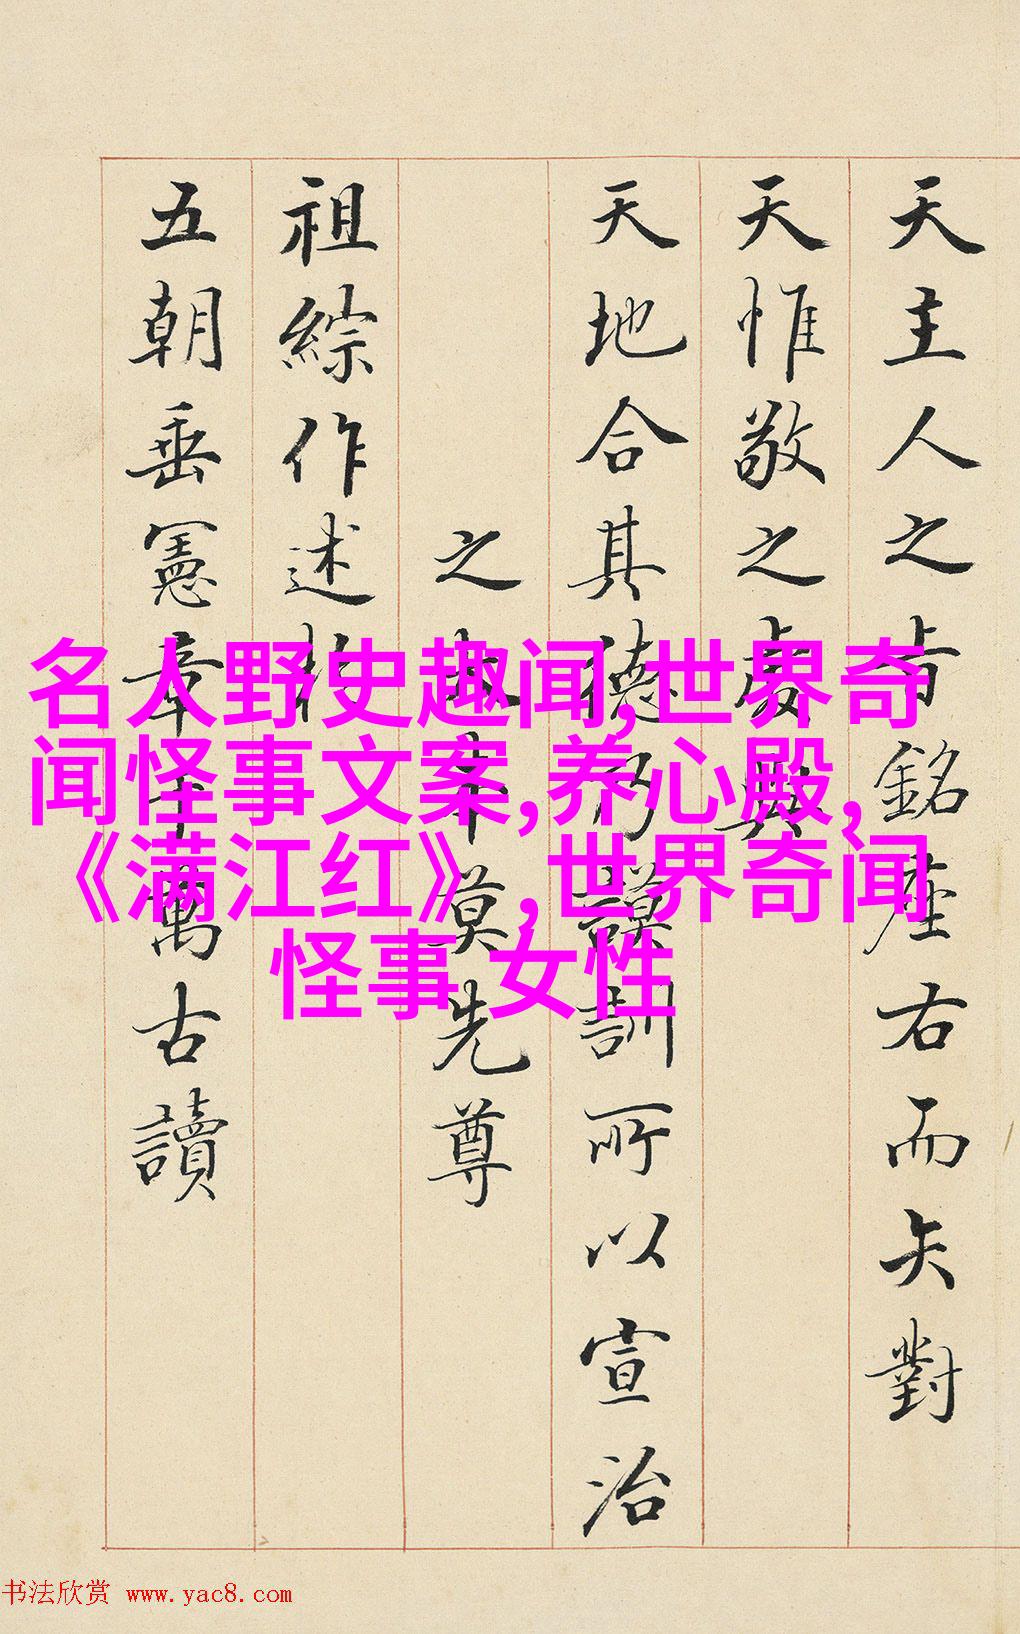 天主人之旨銘座右而矢對
天惟敬之處與
天地合其德乃謨訓所以宣治
之本莫先尊
祖綜作述於
五朝垂憲章千萬古讀
名人野史趣闻,世界奇
闻怪事文案,养心殿,
《满江红》,世界奇闻
怪事 女性
书法欣赏 www.yac8.com